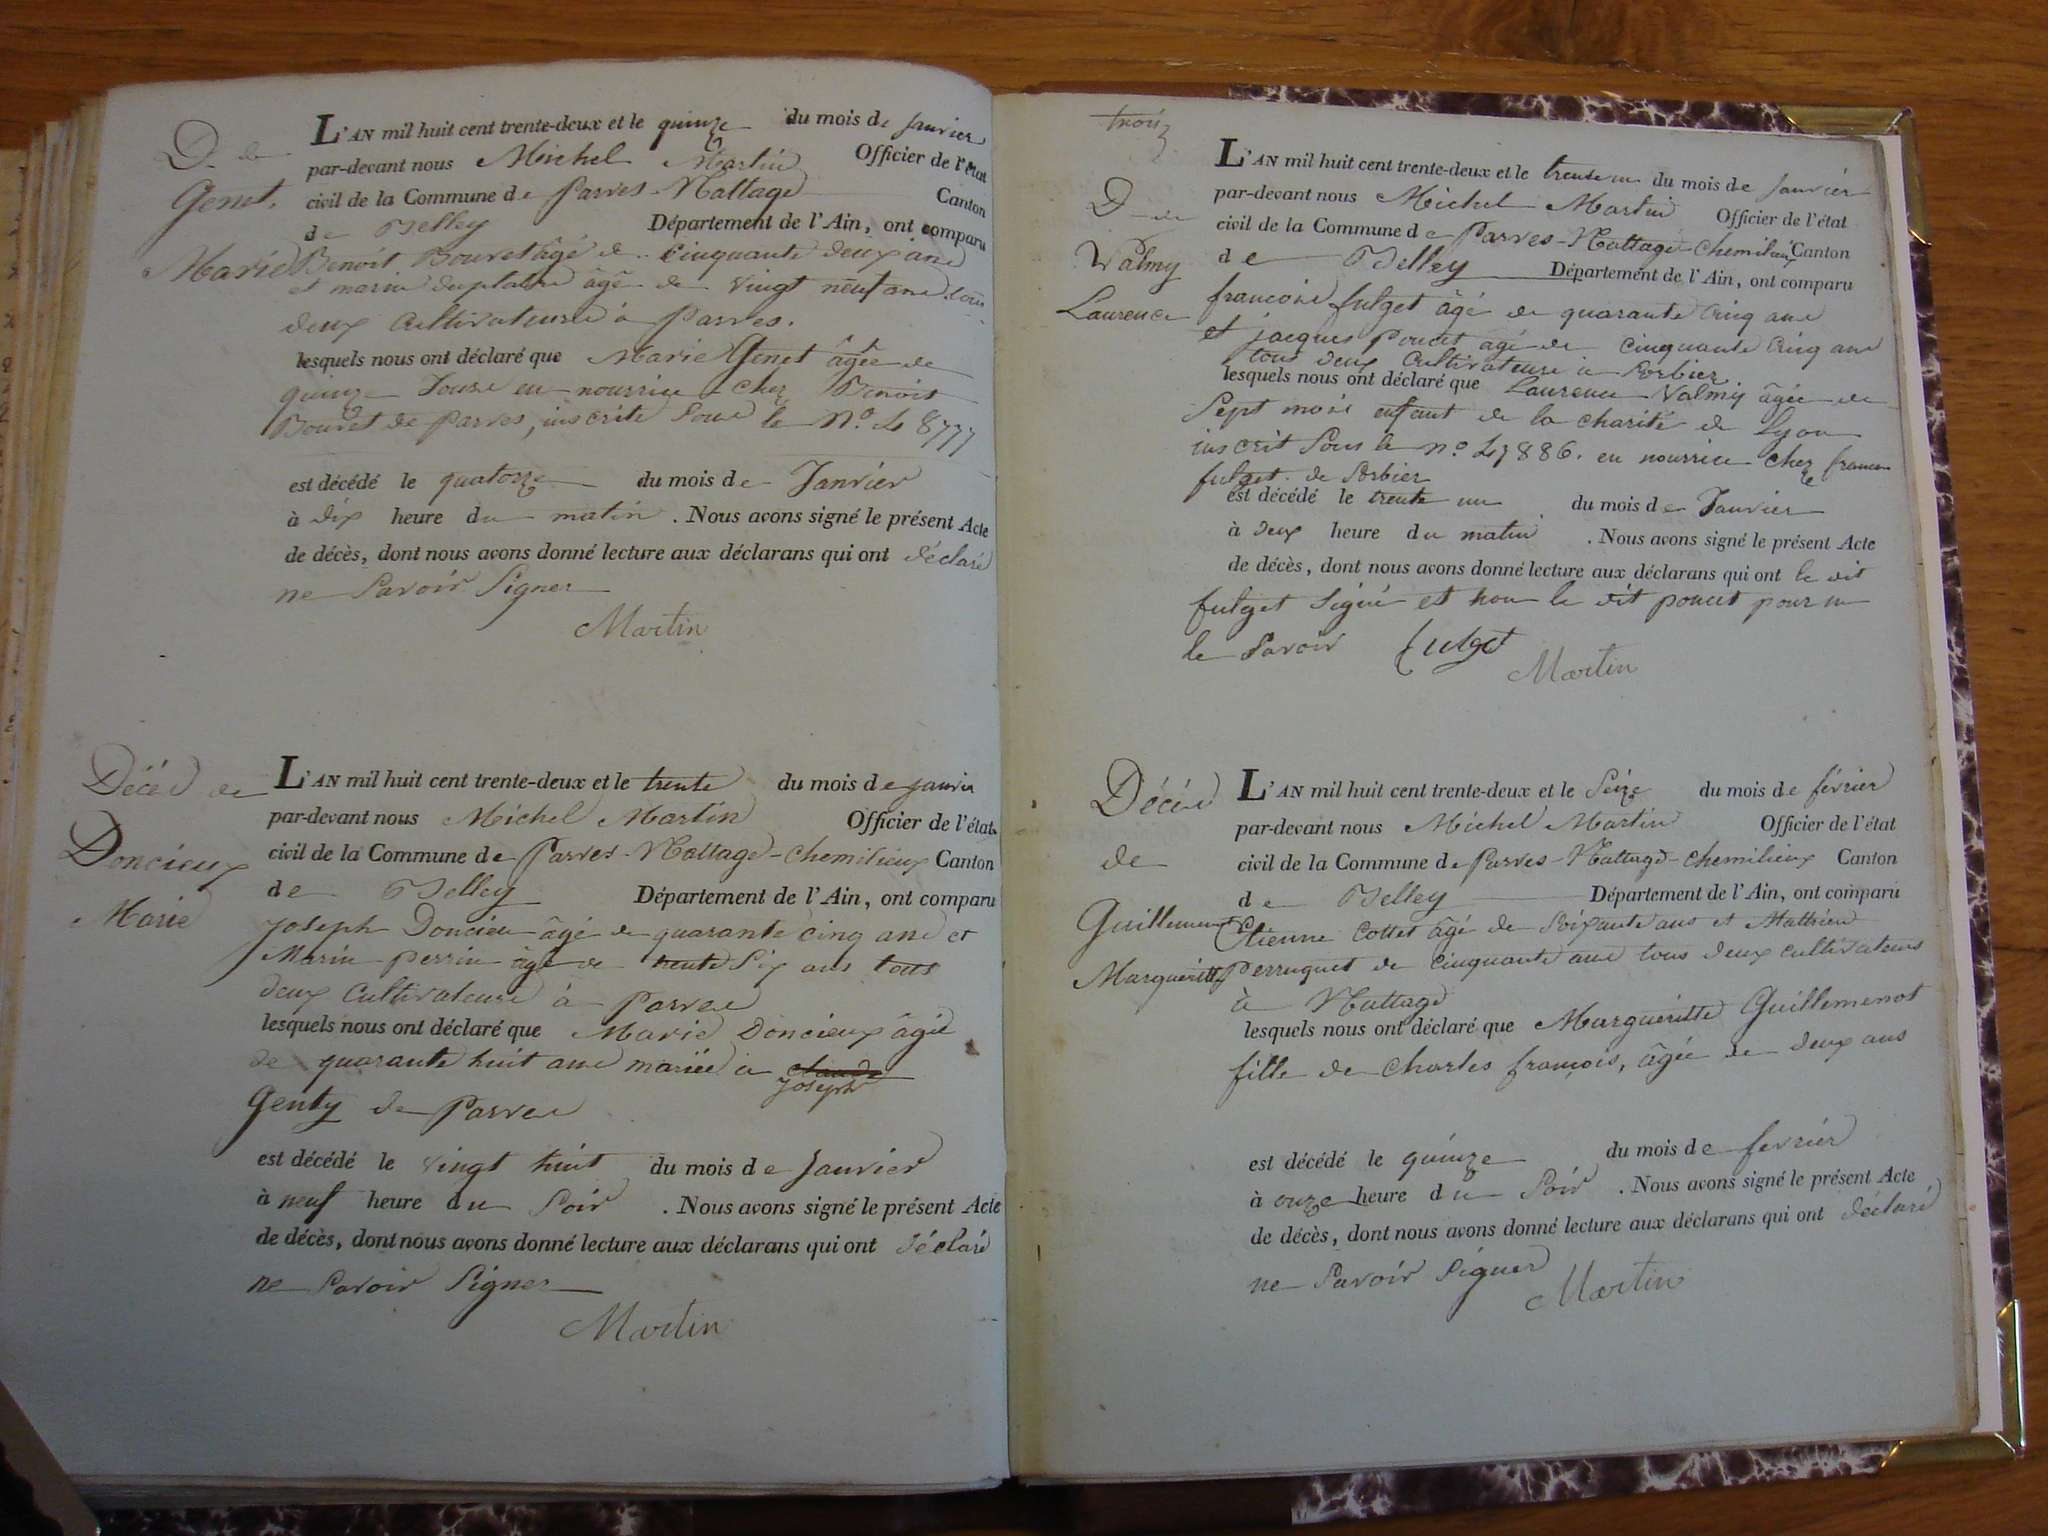 D. de
Genet.
Marie
L'AN mil huit cent trente-deux et le quinze du mois de Janvier
par-devant nous Michel Martin Officier de l'état
civil de la Commune de Parves-Nattage Canton
de Belley Département de l'Ain, ont comparu
Benoit Bouvet âgé de cinquante deux ans
et âgé de vingt neuf ans tous
deux Cultivateurs à Parves.
lesquels nous ont déclaré que Marie Genet âgée de
quinze Jours en nourrice chez Benoit
Bouvet de Parves, inscrite Sous le N.º 48777
est décédé le quatorze du mois de Janvier
à dix heure du matin. Nous avons signé le présent Acte
de décès, dont nous avons donné lecture aux déclarans qui ont déclaré
ne Savoir Signer
Martin
Décéd de
Doncieux
Marie
L'AN mil huit cent trente-deux et le trente du mois de janvier
par-devant nous Michel Martin Officier de l'état
civil de la Commune de Parves-Nattage-chemilieux Canton
de Belley Département de l'Ain, ont comparu
Joseph Doncieu âgé de quarante cinq ans et
Marin perrin âgé de trente Six ans tous
deux Cultivateurs à parves
lesquels nous ont déclaré que Marie Doncieux âgée
de quarante huit ans mariée à claude
Joseph
Genty de Parves
est décédé le vingt huit du mois de Janvier
à neuf heure du Soir. Nous avons signé le présent Acte
de décès, dont nous avons donné lecture aux déclarans qui ont déclaré
ne Savoir Signer
Martin
trois
D de
Valmy
Laurence
L'AN mil huit cent trente-deux et le trente un du mois de Janvier
par-devant nous Michel Martin Officier de l'état
civil de la Commune de Parves-Nattage-Chemilieux Canton
de Belley Département de l'Ain, ont comparu
francois fulget âgé de quarante Cinq ans
et jacques poncet âgé de cinquante Cinq ans
tous deux Cultivateurs à Sorbier
lesquels nous ont déclaré que Laurence Valmy âgée de
Sept mois enfant de la charité de Lyon
inscrit Sous le n.º 47886. en nourrice chez francois
fulget de Sorbier
est décédé le trente un du mois de Janvier
à deux heure du matin. Nous avons signé le présent Acte
de décès, dont nous avons donné lecture aux déclarans qui ont le dit
fulget Signé et non le dit poncet pour ne
le Savoir fulget
Martin
Décéd
de
Guillemenot
Marguéritte
L'AN mil huit cent trente-deux et le Seize du mois de février
par-devant nous Michel Martin Officier de l'état
civil de la Commune de Parves-Nattage-chemilieux Canton
de Belley Département de l'Ain, ont comparu
Etienne Cottet âgé de Soixante ans et Mathieu
Perruquet de Cinquante ans tous deux cultivateurs
à Nattage
lesquels nous ont déclaré que Marguéritte Guillemenot
fille de Charles françois, âgée de deux ans
est décédé le quinze du mois de fevrier
à onze heure du Soir. Nous avons signé le présent Acte
de décès, dont nous avons donné lecture aux déclarans qui ont déclaré
ne Savoir Signer
Martin